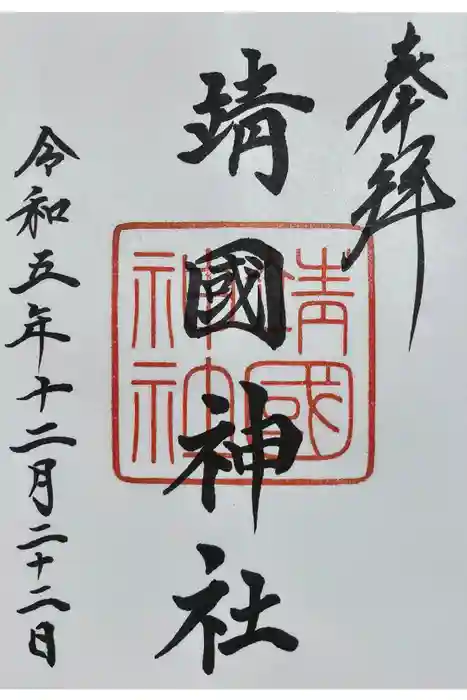 奉拝
靖國神社
靖國神社
令和五年十二月二十二日